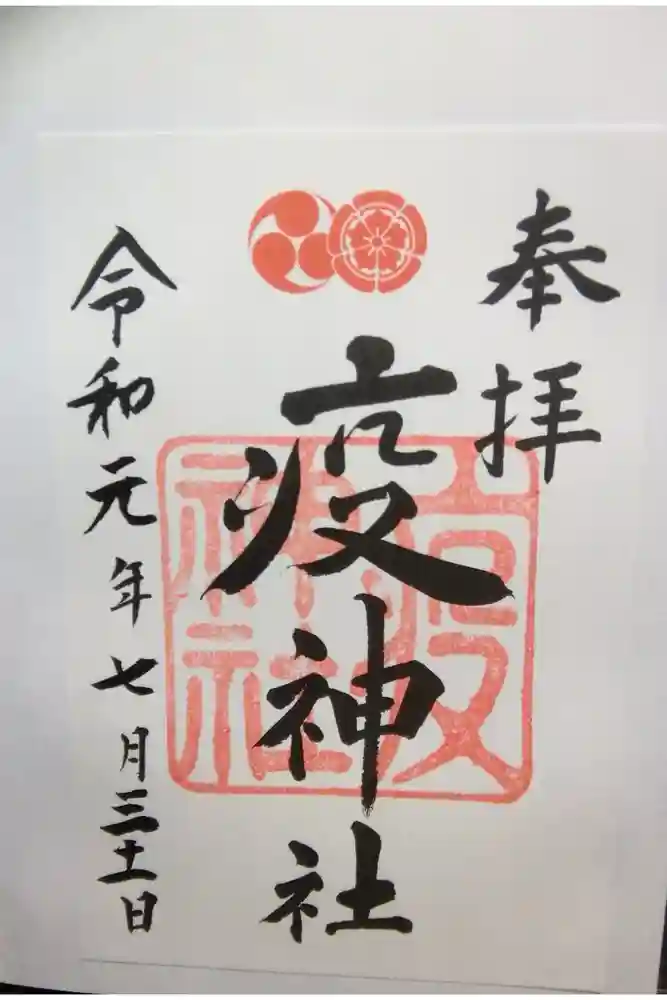 奉拝
疫神社
疫
神社
令和元年七月三十一日